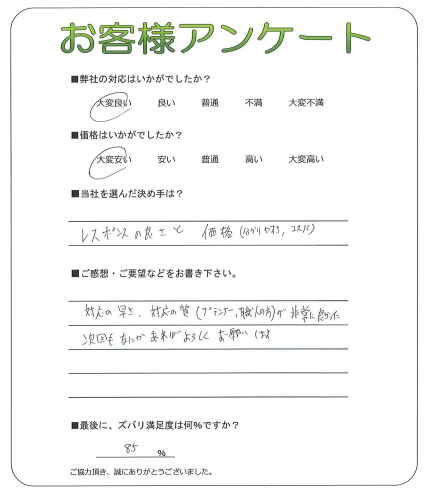 お客様アンケート
■弊社の対応はいかがでしたか？
大変良い 良い 普通 不満 大変不満
■価格はいかがでしたか？
大変安い 安い 普通 高い 大変高い
■当社を選んだ決め手は？
レスポンスの良さと 価格(分かりやすさ,コスパ)
■ご感想・ご要望などをお書き下さい。
対応の早さ、対応の質(プランナー,職人の方)が非常に良かった
次回もなにかあればよろしくお願い
■最後に、ズバリ満足度は何%ですか？
85 %
ご協力頂き、誠にありがとうございました。